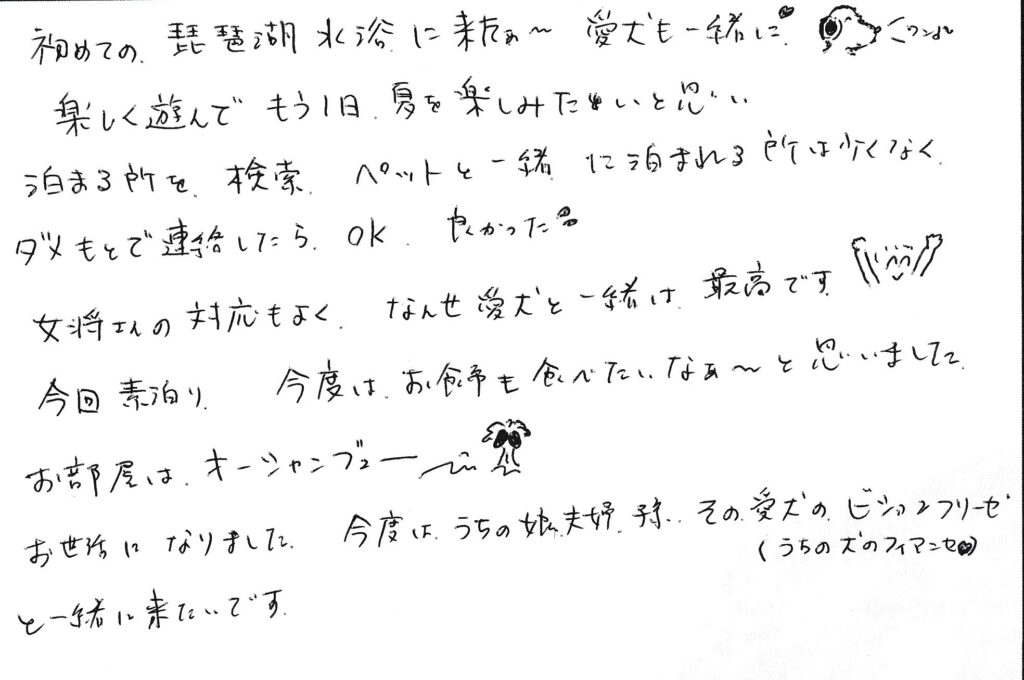 初めての、琵琶湖水浴に来たぁ〜 愛犬も一緒に♥
楽しく遊んで もう1日、夏を楽しみたいと思い
泊まる所を、検索、ペットと一緒に泊まれる所は少くなく、
ダメもとで連絡したら、OK、良かった
女将さんの対応もよく、なんせ愛犬と一緒は、最高です
今回素泊り、今度は、お食事も食べたいなぁ〜と思いいました
お部屋は、オーシャンブュー
お世話になりました、今度は、うちの娘夫婦、孫、その愛犬の、ビションフリーゼ
(うちの犬のフィアンセ♥)
と一緒に来たいです。